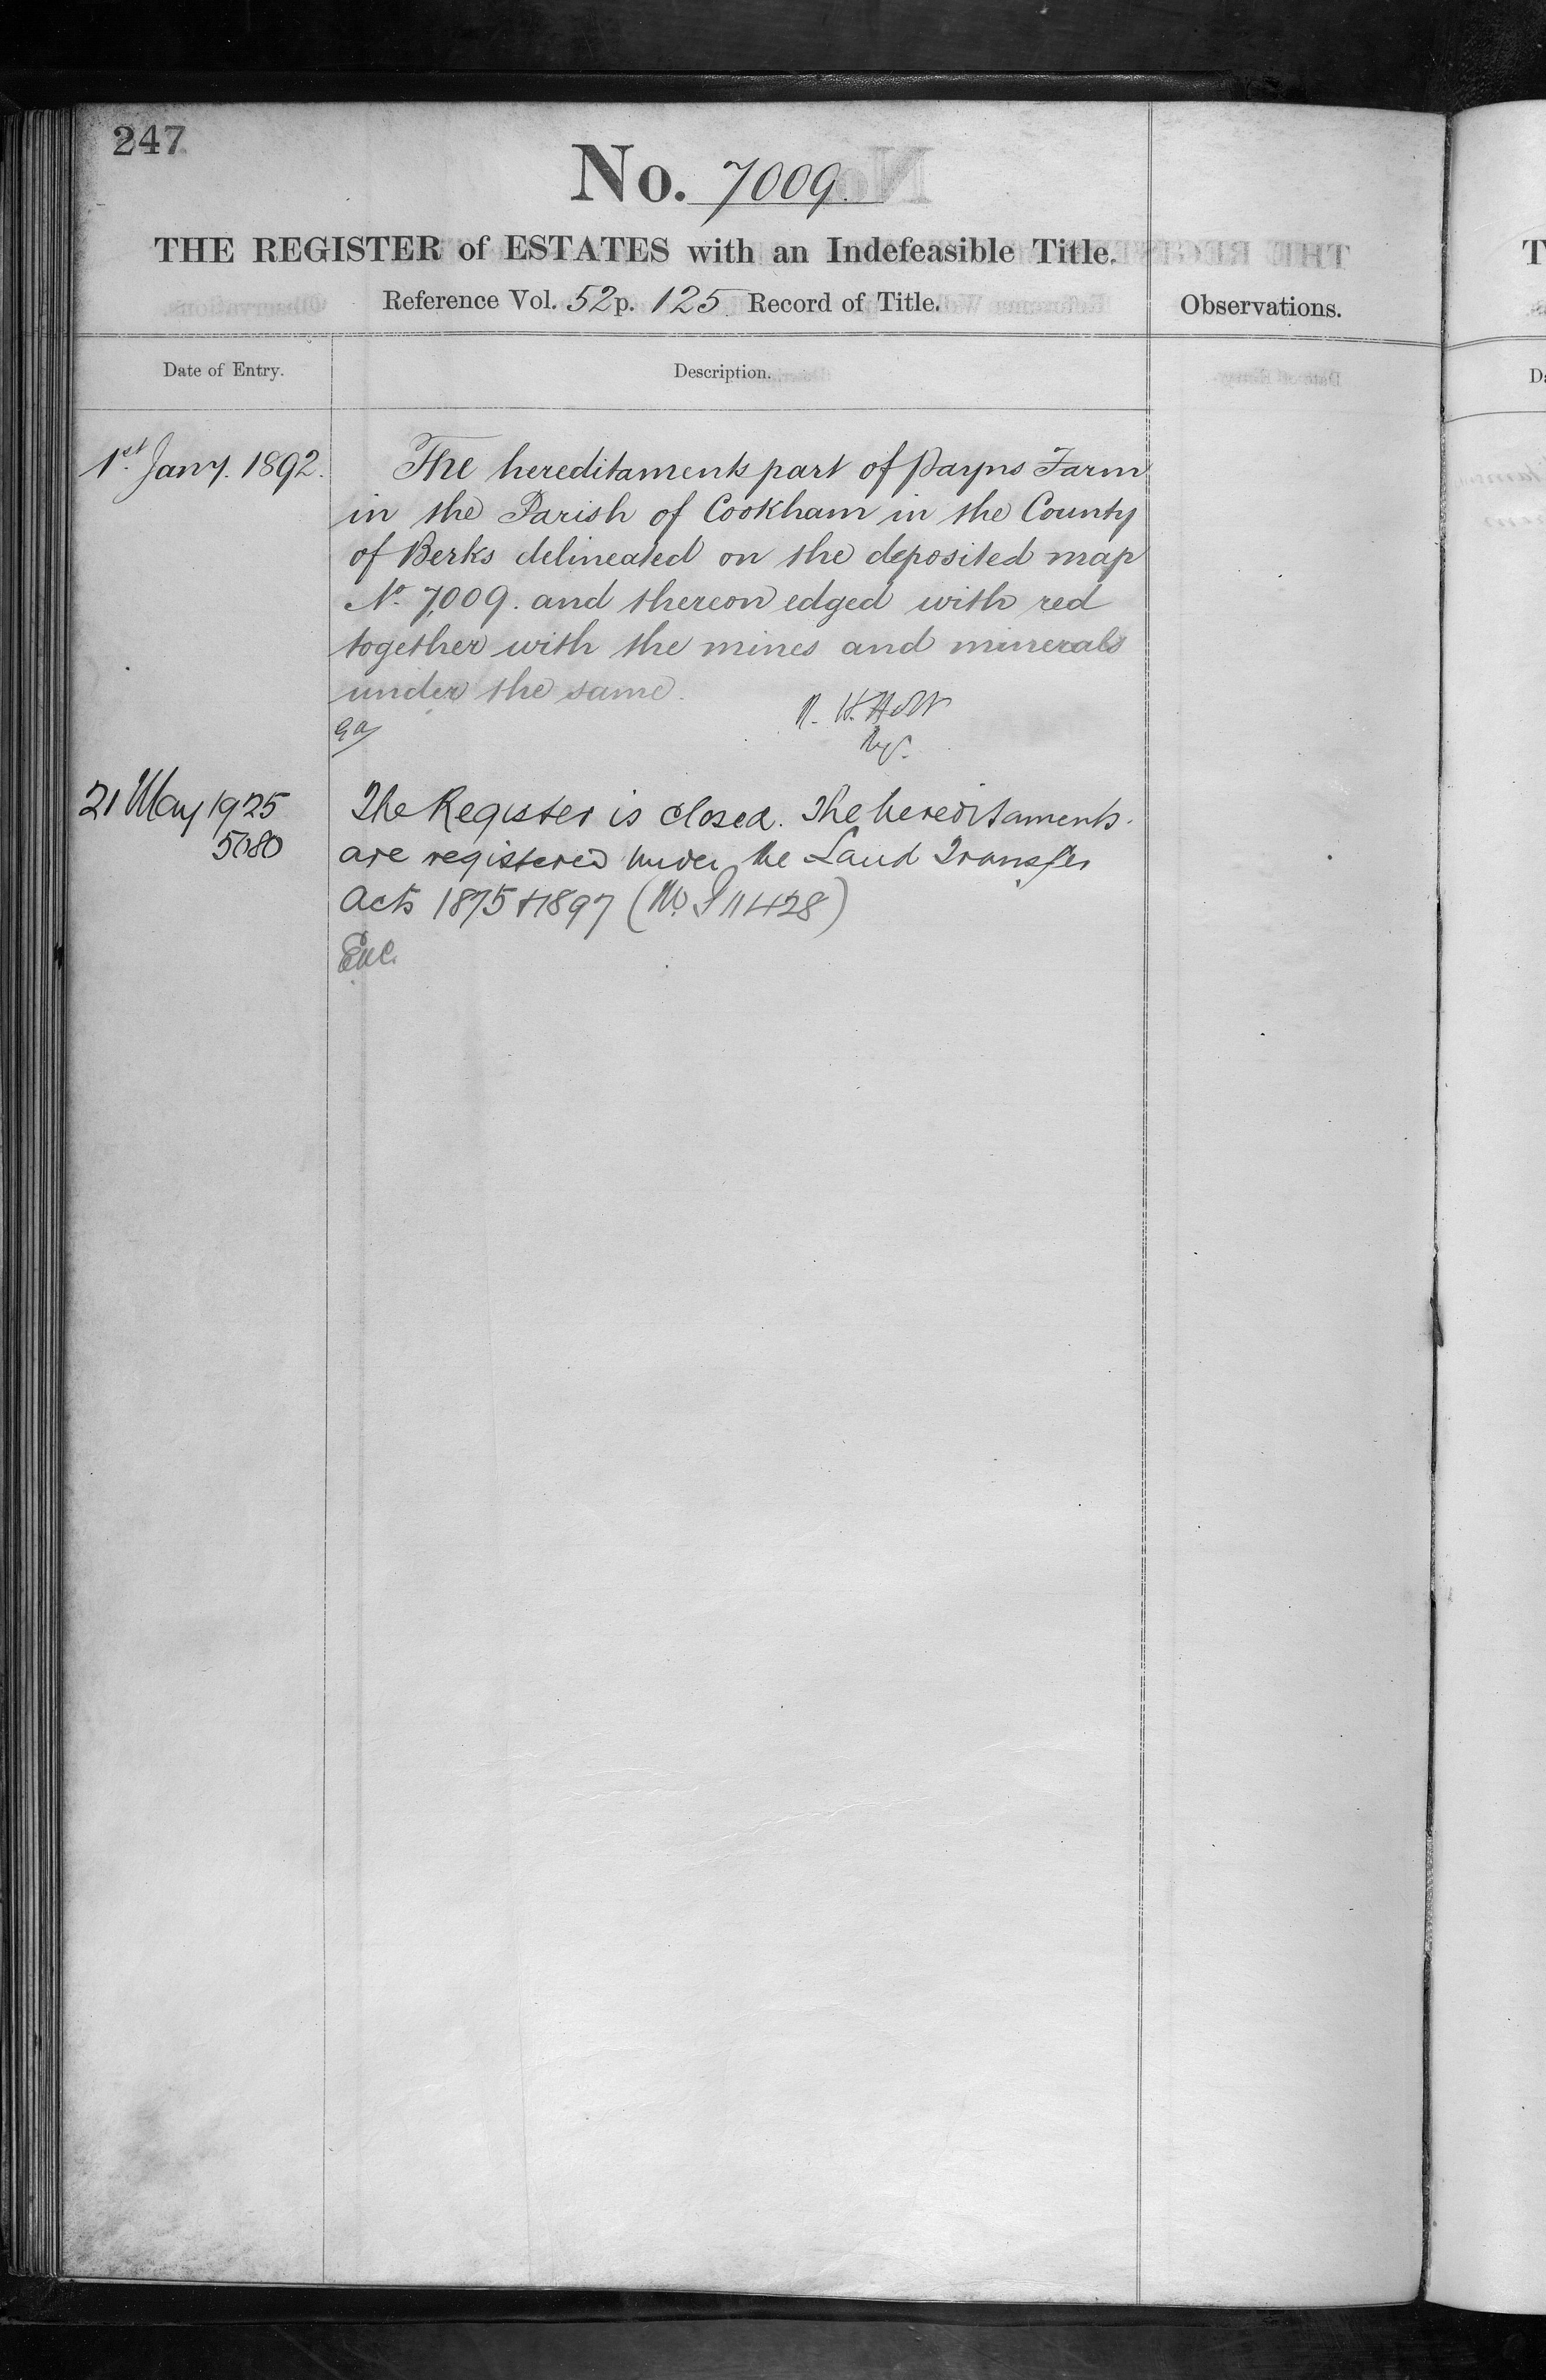 247
No. 7009.
THE REGISTER of ESTATES with an Indefeasible Title.
Reference Vol. 52 p. 125 Record of Title.
Observations.
Date of Entry.
Description.
1st Jany. 1892.
The hereditaments part of Payns Farm
in the Parish of Cookham in the County
of Berks delineated on the deposited map
No. 7,009. and thereon edged with red
together with the mines and minerals
under the same.
R. H. Holt
Regr.
21 May 1925
5080
The Register is closed. The hereditaments.
are registered under the Land Transfer
Acts 1875 & 1897 (No. P 11428)